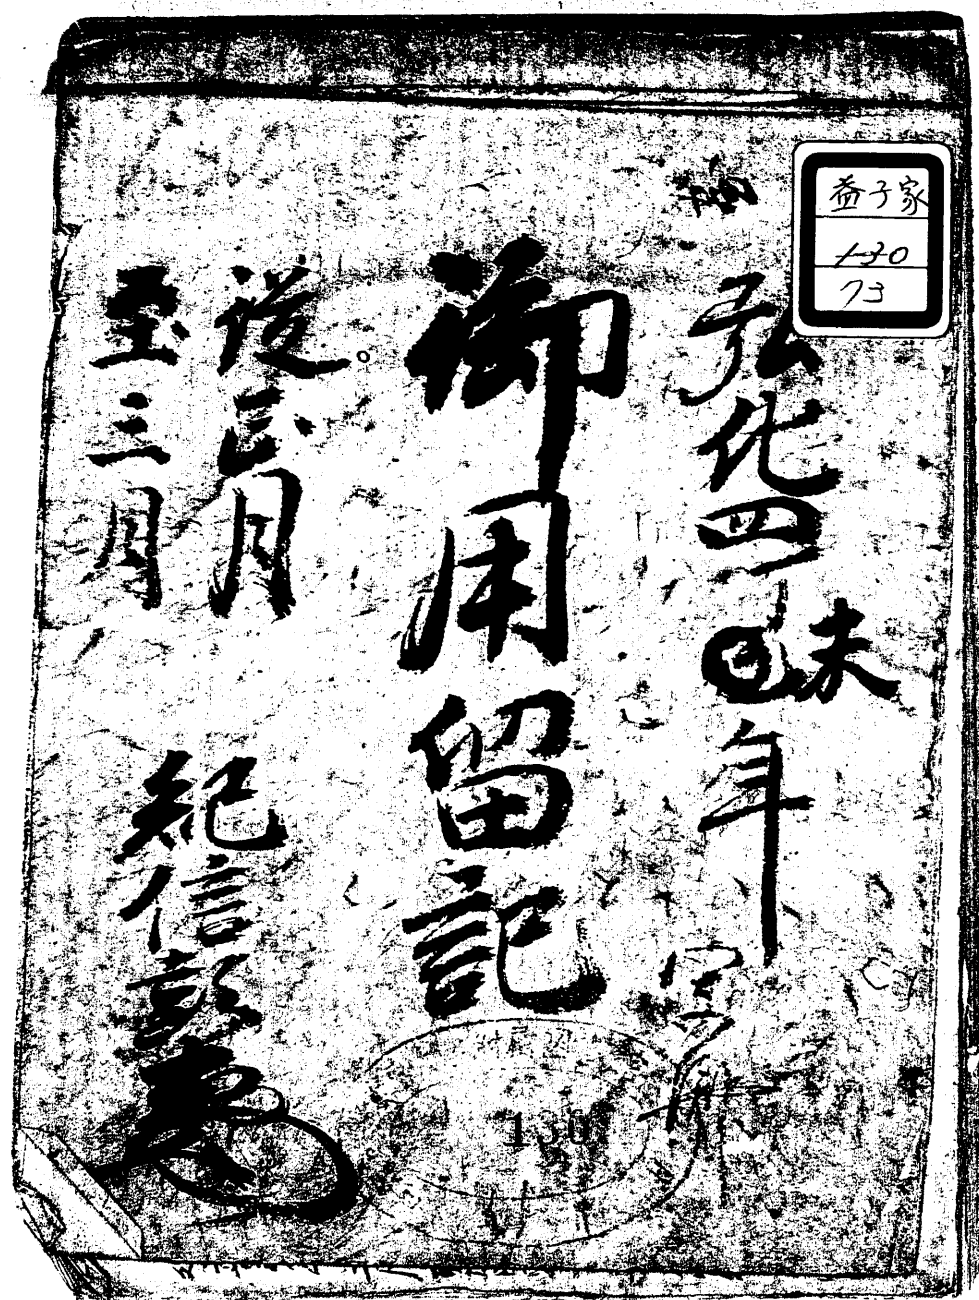 益子家
130
73
弘化四未年
御用留記
従正月
至三月
紀信彭
130